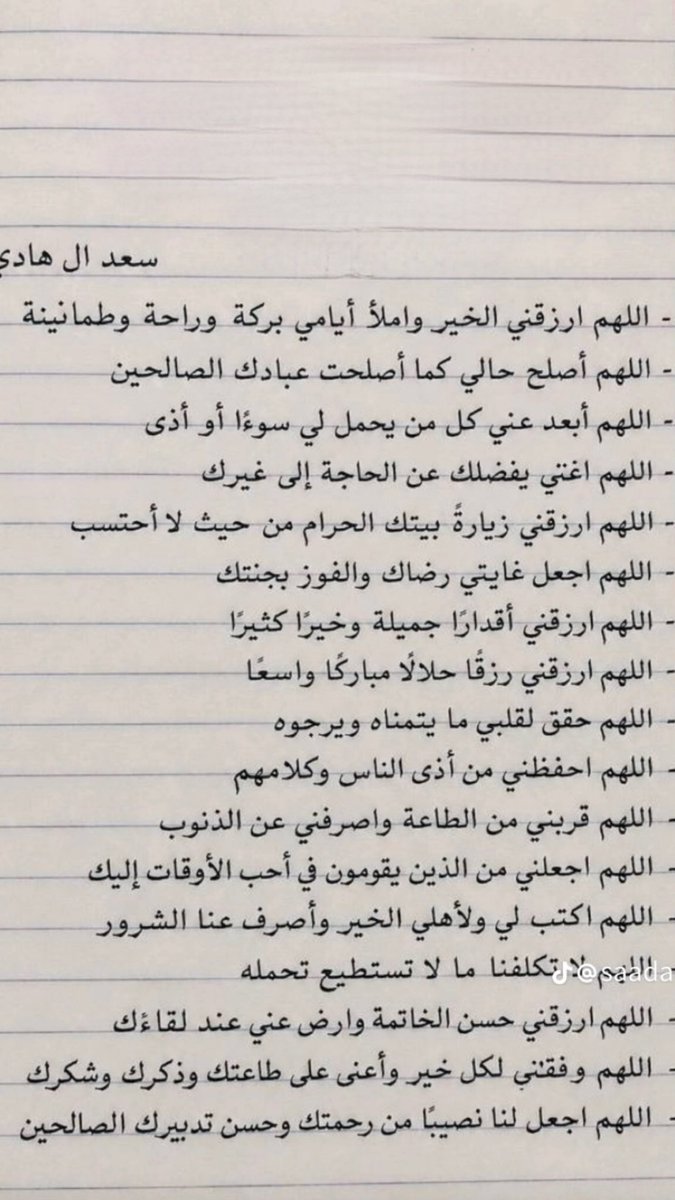 سعد ال هادي
- اللهم ارزقني الخير واملأ أيامي بركة وراحة وطمانينة
- اللهم أصلح حالي كما أصلحت عبادك الصالحين
- اللهم أبعد عني كل من يحمل لي سوءًا أو أذى
- اللهم اغتي يفضلك عن الحاجة إلى غيرك
- اللهم ارزقني زيارةً بيتك الحرام من حيث لا أحتسب
- اللهم اجعل غايتي رضاك والفوز بجنتك
- اللهم ارزقني أقدارًا جميلة وخيرًا كثيرًا
- اللهم ارزقني رزقًا حلالًا مباركًا واسعًا
- اللهم حقق لقلبي ما يتمناه ويرجوه
- اللهم احفظني من أذى الناس وكلامهم
- اللهم قربني من الطاعة واصرفني عن الذنوب
- اللهم اجعلني من الذين يقومون في أحب الأوقات إليك
- اللهم اكتب لي ولأهلي الخير وأصرف عنا الشرور
- اللهم لا تكلفنا ما لا تستطيع تحمله
@saada
- اللهم ارزقني حسن الخاتمة وارض عني عند لقاءك
- اللهم وفقني لكل خير وأعنى على طاعتك وذكرك وشكرك
- اللهم اجعل لنا نصيبًا من رحمتك وحسن تدبيرك الصالحين